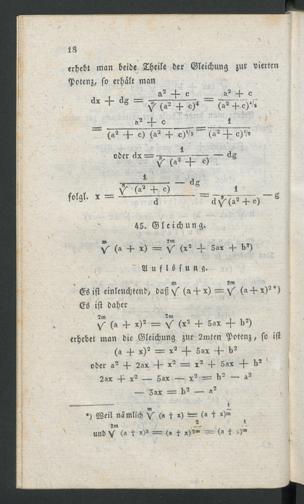 18
erhebt man beide Theile der Gleichung zur vierten
Potenz, so erhält man
dx + dg = (a² + c)/(⁵√(a² + c)⁴) = (a² + c)/((a² + c)⁴/₅)
= (a² + c)/((a² + c) (a² + c)¹/₅) = 1/((a² + c)¹/₅)
oder dx = 1/(⁵√(a² + c)) — dg
folgl. x = (1/(⁵√(a² + c)) — dg)/d = 1/(d ⁵√(a² + c)) — g
45. Gleichung.
ᵐ√ (a + x) = ²ᵐ√ (x² + 5ax + b²)
Auflösung.
Es ist einleuchtend, daß ᵐ√ (a + x) = ²ᵐ√ (a + x)² *)
Es ist daher
²ᵐ√ (a + x)² = ²ᵐ√ (x² + 5ax + b²)
erhebet man die Gleichung zur 2mten Potenz, so ist
(a + x)² = x² + 5ax + b²
oder a² + 2ax + x² = x² + 5ax + b²
2ax + x² — 5ax — x² = b² — a²
— 3ax = b² — a²
*) Weil nämlich ᵐ√ (a + x) = (a + x)^(1/m)
und ²ᵐ√ (a + x)² = (a + x)^(2/2m) = (a + x)^(1/m)